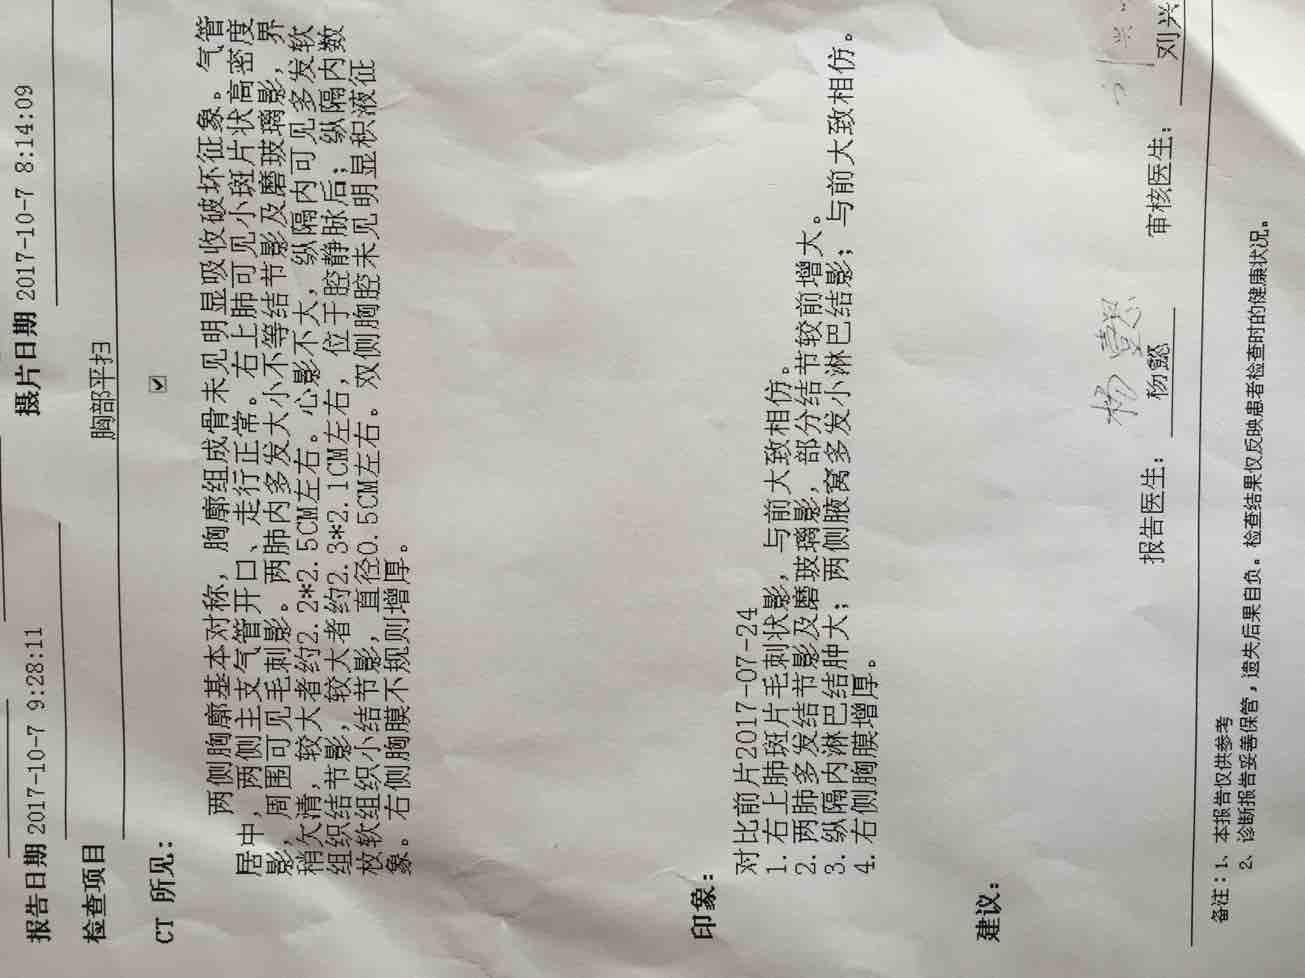 报告日期 2017-10-7 9:28:11 摄片日期 2017-10-7 8:14:09
检查项目 胸部平扫
CT 所见： ☑
两侧胸廓基本对称，胸廓组成骨未见明显吸收破坏征象。气管
居中，两侧主支气管开口、走行正常。右上肺可见小斑片状高密度
影，周围可见毛刺影。两肺内多发大小不等结节影及磨玻璃影，界
稍欠清，较大者约2.2*2.5CM左右。心影不大，纵隔内可见多发软
组织结节影，较大者约2.3*2.1CM左右，位于腔静脉后；纵隔内数
枚软组织小结节影，直径0.5CM左右。双侧胸腔未见明显积液征
象。右侧胸膜不规则增厚。
印象：
对比前片2017-07-24
1.右上肺斑片毛刺状影，与前大致相仿。
2.两肺多发结节影及磨玻璃影，部分结节较前增大。
3.纵隔内淋巴结肿大；两侧腋窝多发小淋巴结影；与前大致相仿。
4.右侧胸膜增厚。
建议：
杨懿
报告医生： 杨懿 审核医生： 刘兴
备注：1、本报告仅供参考
2、诊断报告妥善保管，遗失后果自负。检查结果仅反映患者检查时的健康状况。